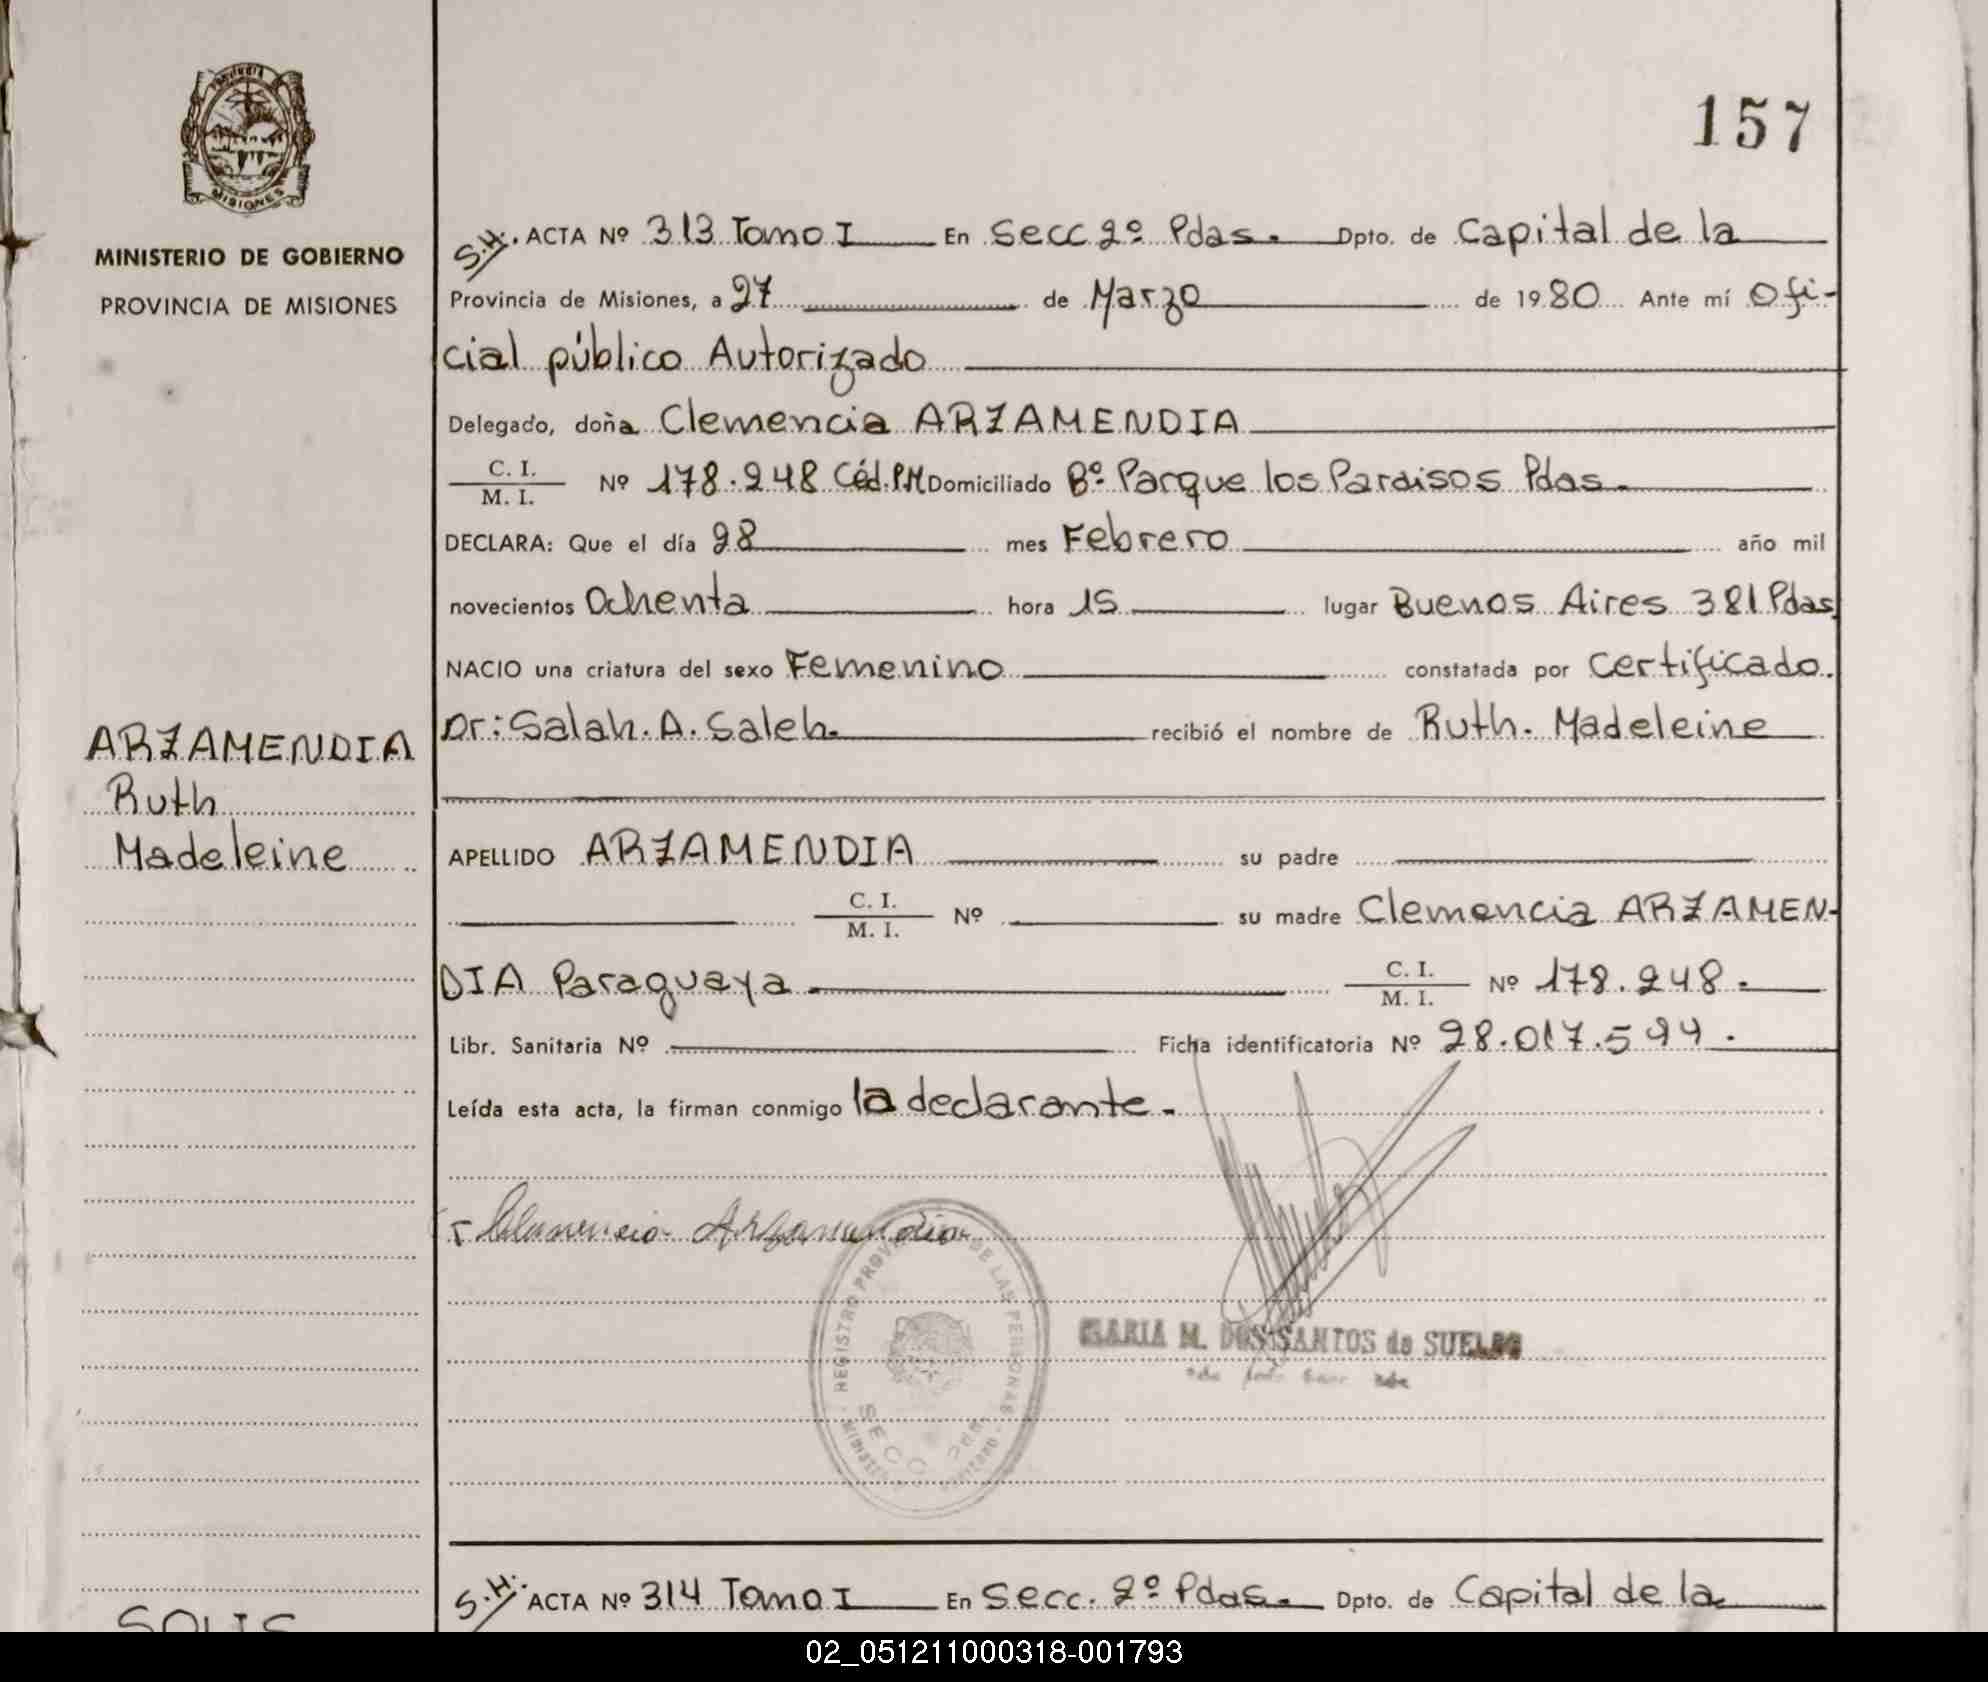 157
MISIONES
MINISTERIO DE GOBIERNO
PROVINCIA DE MISIONES
S.H. ACTA Nº 313 Tomo I En Secc 2º Pdas. Dpto. de Capital de la
Provincia de Misiones, a 27 de Marzo de 1980 Ante mí Ofi-
cial público Autorizado
Delegado, doña Clemencia ARZAMENDIA
C. I.
M. I. Nº 178.248 Céd. P.M Domiciliado Bº Parque los Paraisos Pdas.
DECLARA: Que el día 28 mes Febrero año mil
novecientos Ochenta hora 15 lugar Buenos Aires 381 Pdas
NACIO una criatura del sexo Femenino constatada por Certificado.
Dr: Salah. A. Saleh. recibió el nombre de Ruth. Madeleine
ARZAMENDIA
Ruth
Madeleine
APELLIDO ARZAMENDIA su padre
C. I.
M. I. Nº su madre Clemencia ARZAMEN-
DIA Paraguaya C. I.
M. I. Nº 178.248.
Libr. Sanitaria Nº Ficha identificatoria Nº 28.017.544.
Leída esta acta, la firman conmigo la declarante.
Clemencia Arzamendia
REGISTRO PROV DE LAS PERSONAS
SECC
MARIA M. DOS SANTOS de SUELDO
S.H. ACTA Nº 314 Tomo I En Secc. 2º Pdas. Dpto. de Capital de la
SOLIS
02_051211000318-001793